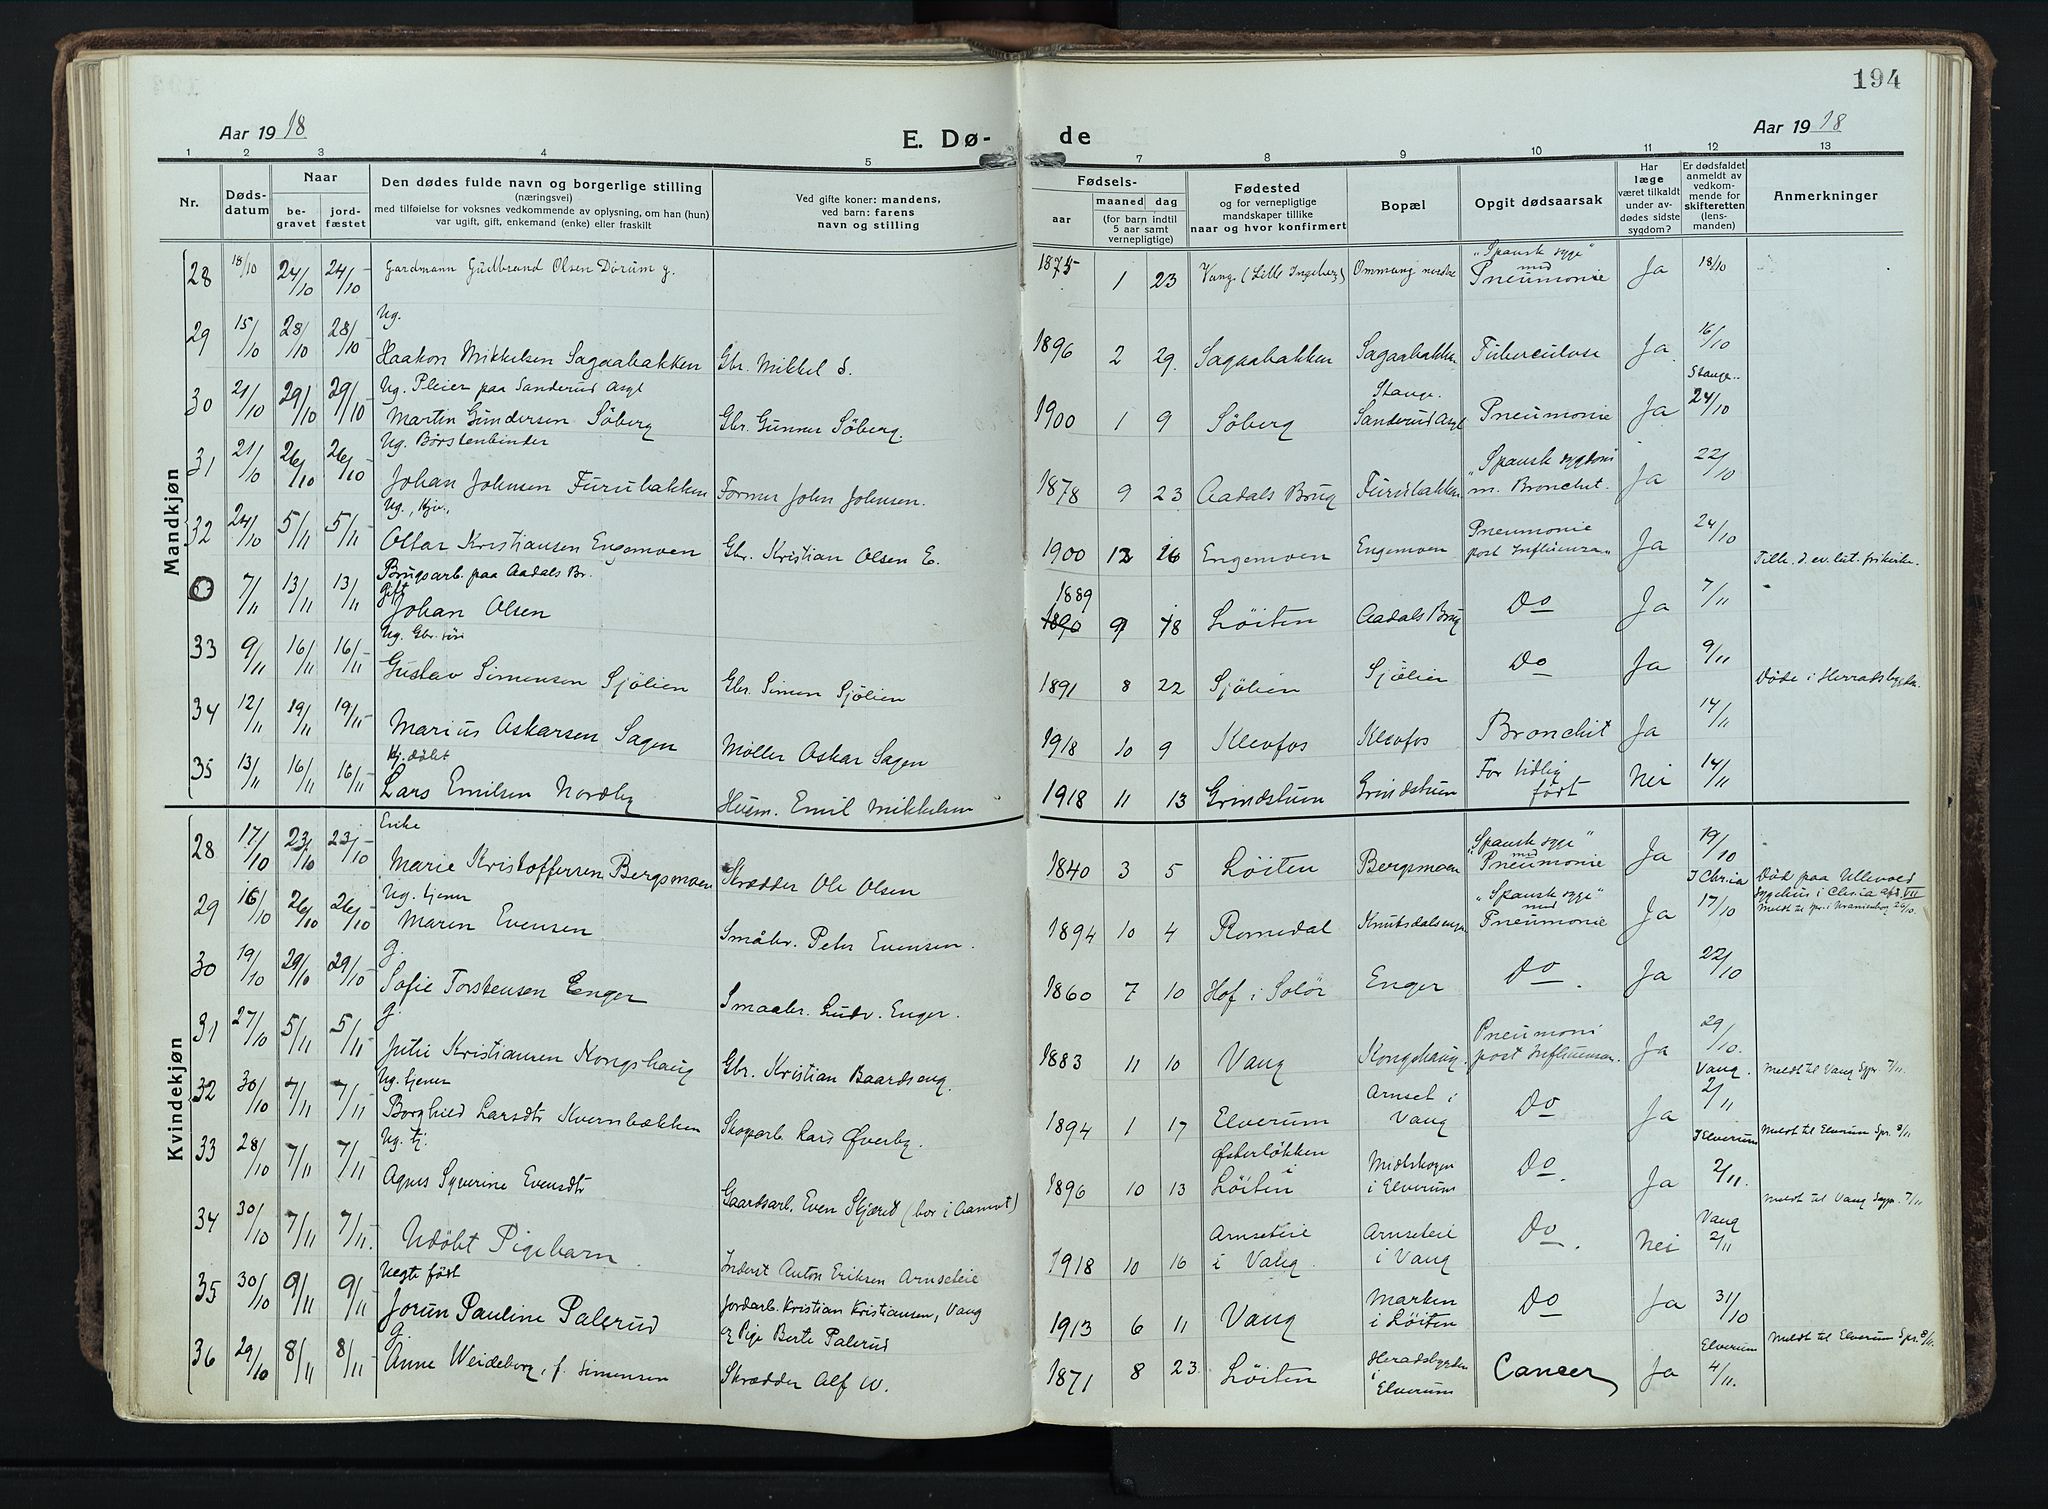 194
Aar 1918
E. Dø- de
Aar 1918
1 2 3 4 5 7 8 9 10 11 12 13
Nr.
Dødsdatum
Naar
begravet
jordfæstet
Den dødes fulde navn og borgerlige stilling
(næringsvei)
med tilføielse for voksnes vedkommende av oplysning, om han (hun)
var ugift, gift, enkemand (enke) eller fraskilt
Ved gifte koner: mandens,
ved barn: farens
navn og stilling
Fødsels-
aar
maaned dag
(for barn indtil
5 aar samt
vernepligtige)
Fødested
og for vernepligtige
mandskaper tillike
naar og hvor konfirmert
Bopæl
Opgit dødsaarsak
Har
læge
været tilkaldt
under av-
dødes sidste
sygdom?
Er dødsfaldet
anmeldt av
vedkom-
mende for
skifteretten
(lens-
manden)
Anmerkninger
Mandkjøn
28 18/10 24/10 24/10 Gardmann Gudbrand Olsen Dørum g. 1875 1 23 Vang (Lille Ingeberg) Ommang nordre "Spansk syge" med Pneumonie Ja 18/10
Ug.
29 15/10 28/10 28/10 Haakon Mikkelsen Sagaabakken Gbr. Mikkel S. 1896 2 29 Sagaabakken Sagaabakken Tuberculose Ja 16/10
Ug. Pleier paa Sanderud Asyl
30 21/10 29/10 29/10 Martin Gundersen Søberg Gbr. Gunner Søberg. 1900 1 9 Søberg Stange. Sanderud Asyl Pneumonie Ja Stange.. 24/10
Ug. Børstenbinder
31 21/10 26/10 26/10 Johan Johnsen Furubakken Former John Johnsen. 1878 9 23 Aadals Brug Furubakken "Spansk sygdom m. Bronchit. Ja 22/10
Ug., Kjv.,
32 24/10 5/11 5/11 Oltar Kristiansen Engemoen Gbr. Kristian Olsen E. 1900 12 26 Engemoen Engemoen Pneumonie post Influenza" Ja 24/10
Brugsarb. paa Aadals Br.
Gift
7/11 13/11 13/11 Johan Olsen 1889 1890 9 18 Løiten Aadals Brug Do Ja 7/11 Tillh. d. ev. lut. frikirke.
Ug. Gbr. søn
33 9/11 16/11 16/11 Gustav Simensen Sjølien Gbr. Simen Sjølien 1891 8 22 Sjølien Sjølien Do Ja 9/11 Døde i Herradsbygden.
34 12/11 19/11 19/11 Marius Askarsen Sagen Møller Oskar Sagen 1918 10 9 Klevfos Klevfos Bronchit Ja 14/11
Hj. døbt
35 13/11 16/11 16/11 Lars Emilsen Nordby Husm. Emil Mikkelsen 1918 11 13 Grindstuen Grindstuen For tidlig født Nei 14/11
Kvindekjøn
Enke
28 17/10 23/10 23/10 Marie Kristoffersen Bergsmoen Skrædder Ole Olsen 1840 3 5 Løiten Bergsmoen "Spansk syge" med Pneumonie Ja 19/10
Ug. tjener
29 16/10 26/10 26/10 Maren Evensen Småbr. Peter Evensen. 1894 10 4 Romedal Knutsdalsengen "Spansk syge" med Pneumonie Ja I Chr.ia 17/10 Død paa Ullevold Sygehus i Chr.ia afd. VII Meldt til spr. i Uranienborg 26/10.
g.
30 19/10 29/10 29/10 Sofie Torstensen Enger Smaabr. Ludv. Enger. 1860 7 10 Hof i Solør Enger Do. Ja 22/10
g.
31 27/10 5/11 5/11 Julie Kristiansen Kongshaug Gbr. Kristian Baardseng. 1883 11 10 Vang Kongshaug. Pneumoni post Influensa Ja 29/10.
Ug. tjener
32 30/10 7/11 7/11 Borghild Larsdtr Kvernbækken Skogarb. Lars Øverby. 1894 1 17 Elverum Arnset i Vang Do Ja Vang. 2/11 Meldt til Vang Sgpr. 7/11.
Ug. tj.
33 28/10 7/11 7/11 Agnes Syverine Evensdtr Gaardsarb. Even Skjæret (bor i Aamot) 1896 10 13 Østerløkken i Løiten Midtskogen i Elverum Do. Ja I Elverum 2/11. Meldt til Elverum Spr. 8/11
34 30/10 7/11 7/11. Udøbt Pigebarn. Inderst Anton Eriksen Arnseteie 1918 10 16 Arnseteie i Vang. Arnseteie i Vang Do. Nei Vang 2/11 Meldt til Vang Sogpr. 7/11
Uegte født
35 30/10 9/11 9/11 Jorun Pauline Palerud Jordarb. Kristian Kristiansen, Vang og Pige Berte Palerud 1913 6 11 Vang Marken i Løiten Do Ja 31/10
g.
36 29/10 8/11 8/11 Anne Weideborg, f. Simensen Skrædder Alf W. 1871 8 23 Løiten Heradsbygden i Elverum Cancer Ja Elverum 4/11. Meldt til Elverum Spr. 8/11.